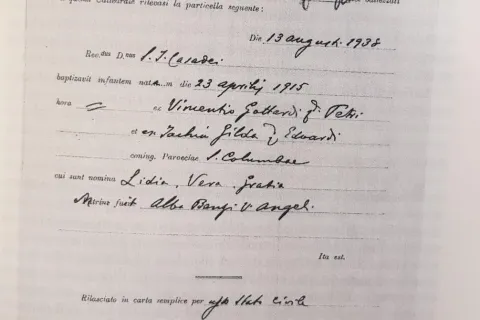 Cattedrale rilevasi la particella seguente:
Die 13 augusti 1938
Rev.dus D.nus S. J. Casadei
baptizavit infantem nat..m die 23 aprilis 1915
hora = ex Vincentio Gotterdi q. Petri
et ex Gilda q. Edoardi
coniug. Paroeciae S. Columbae
cui sunt nomina Lidia, Vera, Gratia
Matrina fuit Alba Angeli.
Ita est.
Rilasciato in carta semplice per uso Stato Civile